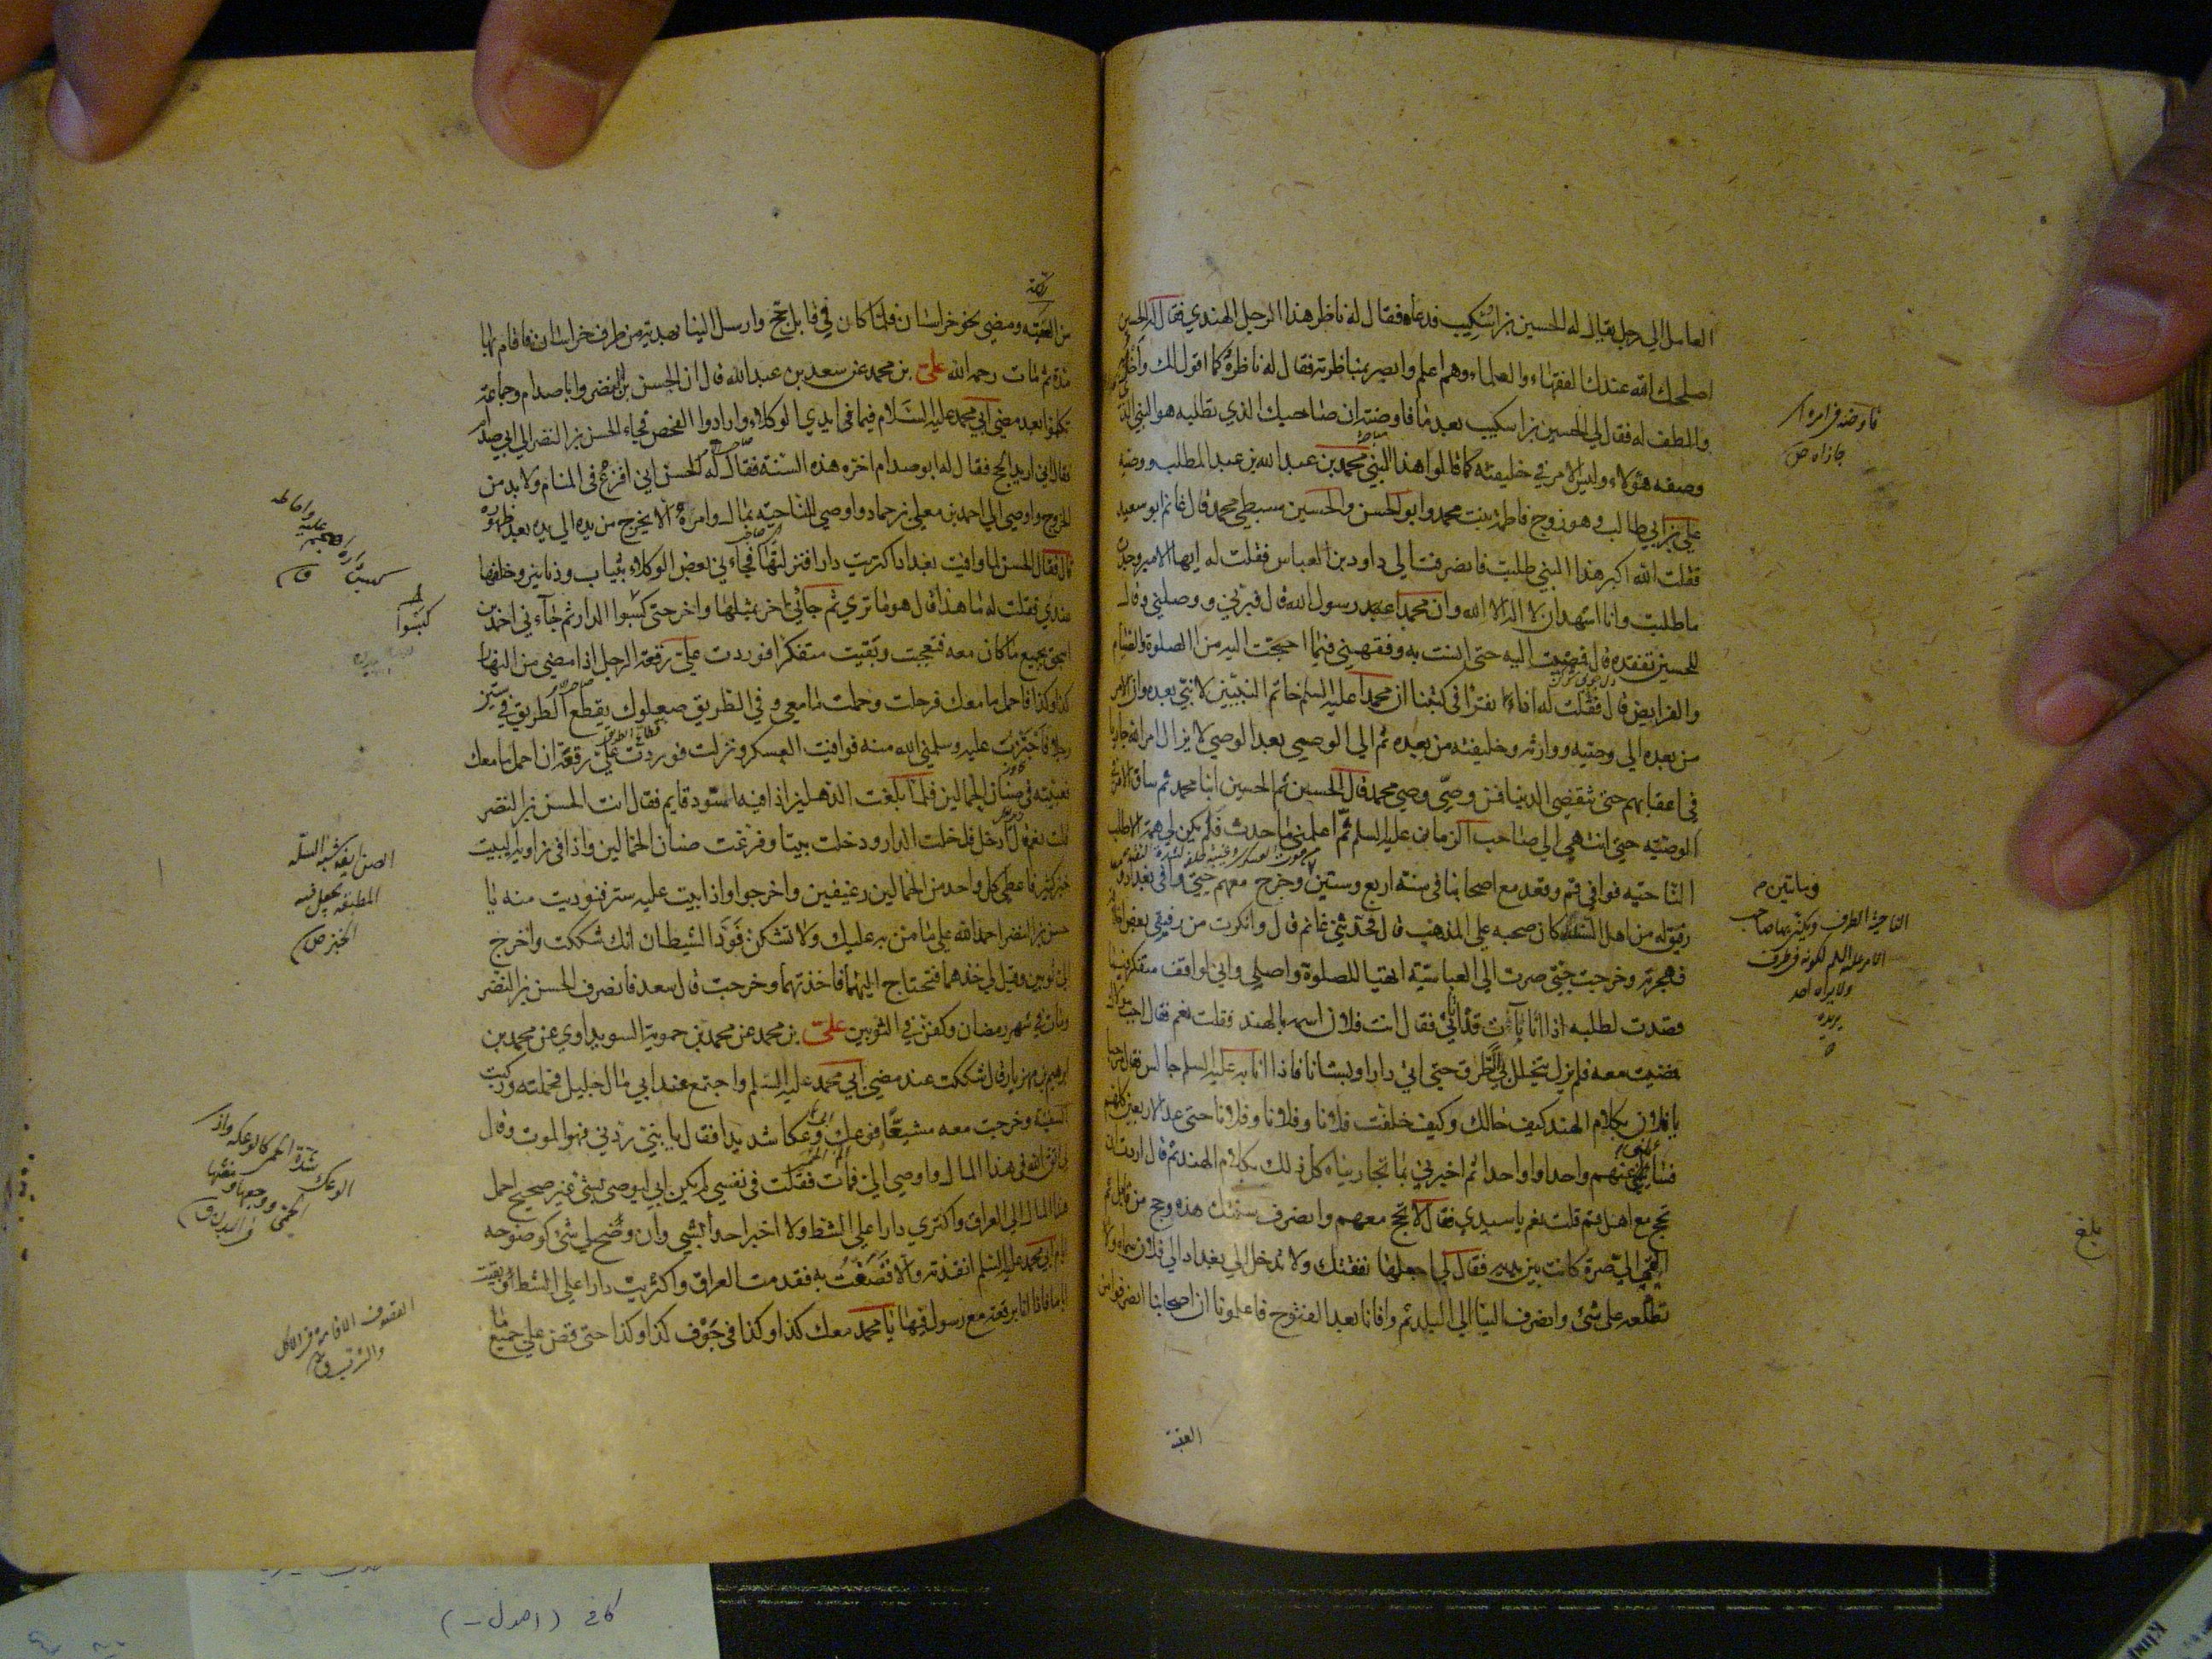 العامل الي رجل يقال له الحسين بن اشكيب فدعاه فقال له ناظر هذا الرجل الهندي فقال له الحسين
اصلحك الله عندك الفقهاء والعلماء وهم اعلم وابصر بمناظرته فقال له ناظره كما اقول لك واخل به
والطف له فقال لي الحسين بن اسكيب بعد ما فاوضته ان صاحبك الذي تطلبه هو النبي الذي
وصفه هؤلاء وليس الامر في خليفته كما قالوا هذا النبي محمد بن عبد الله بن عبد المطلب ووصيه
علي بن ابي طالب و هو زوج فاطمة بنت محمد وابو الحسن والحسين سبطي محمد قال غانم ابو سعيد
فقلت الله اكبر هذا النبي طلبت فانصرفت الي داود بن العباس فقلت له ايها الامير وجدت
ما طلبت وانا اشهد ان لا اله الا الله وان محمدا رسول الله قال فبرني ووصلني وقال
للحسين تفقده قال فمضيت اليه حتى انست به وفقهني فيما احتجت اليه من الصلوة والصيام
والفرايض قال فقلت له انا نقرا في كتبنا ان محمدا عليه السلم خاتم النبيين لا نبي بعده وان الامر
من بعده الي وصيه ووارثه وخليفته من بعده ثم الي الوصي بعد الوصي لا يزال امر الله جاريا
في اعقابهم حتى تنقضي الدنيا فمن وصي وصي محمد قال الحسن ثم الحسين ابنا محمد ثم ساق الامر في
الوصيه حتى انتهي الي صاحب الزمان عليه السلم ثم اعلمني ما حدث فلم يكن لي همة الا طلب
الناحيه فوافي قم وقعد مع اصحابنا في سنة اربع وستين وخرج معهم حتى وافي بغداد و
رفيق له من اهل السند كان صحبه علي المذهب قال فحدثني غانم قال وانكرت من رفيقي بعض اخلاقه
فهجرته وخرجت حتى صرت الي العباسيه اتهيا للصلوة واصلي واني لواقف متفكر فيما
قصدت لطلبه اذا انا بآت قد اتاني فقال انت فلان اسمه بالهند فقلت نعم فقال اجب مولاك
فمضيت معه فلم يزل يتخلل بي الطرق حتى اتي دارا وبستانا فاذا انا به عليه السلم جالس فقال مرحبا
يا فلان بكلام الهند كيف حالك وكيف خلفت فلانا وفلانا وفلانا حتى عد الاربعين كلهم
فسألني عنهم واحدا واحدا ثم اخبرني بما تجاريناه كل ذلك بكلام الهند ثم قال اردت ان
تحج مع اهل قم قلت نعم يا سيدي فقال لا تحج معهم وانصرف سنتك هذه وحج من قابل ثم
القي الي صرة كانت بين يديه فقال لي اجعلها نفقتك ولا تدخل الي بغداد الي فلان سماه ولا
تطلعه على شئ وانصرف الينا الي البلد ثم وافانا بعد الفتوح فاعلمونا ان اصحابنا انصرفوا من
العقبة
فاوضه في امره اي
جاراه ص
الناحية الطرف
بلغ
من العقبة ومضي نحو خراسان فلما كان في قابل حج وارسل الينا بهدية من طرف خراسان فاقام بها
مدة ثم مات رحمه الله علي بن محمد عن سعد بن عبد الله قال ان الحسن بن النضر وابا صدام وجماعة
تكلموا بعد مضي ابي محمد عليه السلام فيما في ايدي الوكلاء وارادوا الفحص فجاء الحسن بن النضر الي ابي صدام
فقال اني اريد الحج فقال له ابو صدام اخره هذه السنة فقال له الحسن اني افزع في المنام ولا بد من
الخروج واوصي الي احمد بن معلي بن حماد واوصي للناحيه بمال وامره الا يخرج من يده الي يده بعد ظهوره
قال فقال الحسن لما وافيت بغداد اكتريت دارا فنزلتها فجاءني بعض الوكلاء بثياب ودنانير وخلفها
عندي فقلت له ما هذا قال هو ما تري ثم جائني اخر بمثلها واخر حتى كبسوا الدار ثم جاءني احمد بن
اسحق بجميع ما كان معه فتعجبت وبقيت متفكرا فوردت علي رقعة الرجل اذا مضي من النهار
كذا وكذا فاحمل ما معك فرحلت وحملت ما معي و في الطريق صعلوك يقطع الطريق في ستين
رجلا فاجتزت عليه وسلمني الله منه فوافيت العسكر ونزلت فوردت علي رقعة ان احمل ما معك
فعبيته في صنان الحمالين فلما بلغت الدهليز اذا فيه اسود قايم فقال انت الحسن بن النضر
قلت نعم قال ادخل فدخلت الدار ودخلت بيتا وفرغت صنان الحمالين واذا في زاوية البيت
خبز كثير فاعطي كل واحد من الحمالين رغيفين واخرجوا واذا بيت عليه ستر فنوديت منه يا
حسن بن النضر احمد الله علي ما من به عليك ولا تشكن فود الشيطان انك شككت واخرج
الي ثوبين وقيل لي خذهما فتحتاج اليهما فاخذتهما وخرجت قال سعد فانصرف الحسن بن النضر
ومات في شهر رمضان وكفن في الثوبين علي بن محمد عن محمد بن حمويه السويداوي عن محمد بن
ابرهيم بن مهزيار قال شككت عند مضي ابي محمد عليه السلم واجتمع عند ابي مال جليل فحمله وركب
السفينة وخرجت معه مشيعا فوعك وعكا شديدا فقال يا بني ردني فهو الموت وقال
لي اتق الله في هذا المال واوصي الي فمات فقلت في نفسي لم يكن ابي ليوصي بشئ غير صحيح احمل
هذا المال الي العراق واكتري دارا علي الشط ولا اخبر احدا بشي وان وضح لي شئ كوضوحه
ايام ابي محمد عليه السلم انفذته والا قصفت به فقدمت العراق واكتريت دارا علي الشط وبقيت
اياما فاذا انا برقعة مع رسول فيها يا محمد معك كذا وكذا في جوف كذا وكذا حتى قص علي جميع ما
كبسوا
الصن بالفتح شبه السلة
المطبقة يجعل فيه
الخبز ص
القصوف الاقامة في الاكل
والشرب ق
كافي (اصول -)